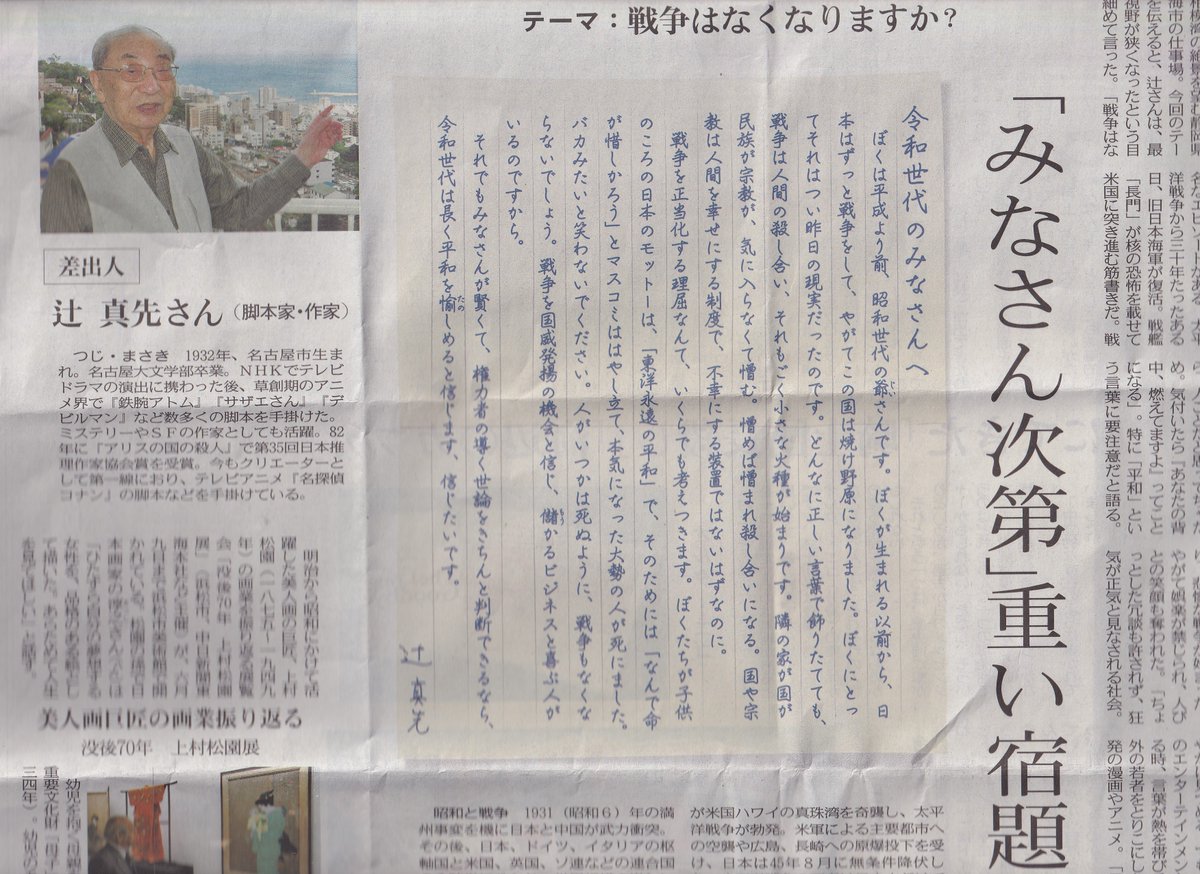 テーマ：戦争はなくなりますか？
「みなさん次第」重い宿題
海市の仕事場。今回のテー
を伝えると、辻さんは、最
視野が狭くなったという目
細めて言った。「戦争はな
洋戦争から三十年たったある
日、旧日本海軍が復活。戦艦
「長門」が核の恐怖を載せて
米国に突き進む筋書きだ。戦
め。気付いたら『あなたの背
中、燃えてますよ』ってこと
になる」。特に「平和」とい
う言葉に要注意だと語る。
やがて娯楽が禁じられ、人び
との笑顔も奪われた。「ちょ
っとした冗談も許されず、狂
気が正気と見なされる社会。
のエンターテインメン
る時、言葉が熱を帯び
外の若者をとりこにし
発の漫画やアニメ。「
令和世代のみなさんへ
ぼくは平成より前、昭和世代の爺さんです。ぼくが生まれる以前から、日
本はずっと戦争をして、やがてこの国は焼け野原になりました。ぼくにとっ
てそれはつい昨日の現実だったのです。どんなに正しい言葉で飾りたてても、
戦争は人間の殺し合い、それもごく小さな火種が始まりです。隣の家が国が
民族が宗教が、気に入らなくて憎む。憎めば憎まれ殺し合いになる。国や宗
教は人間を幸せにする制度で、不幸にする装置ではないはずなのに。
戦争を正当化する理屈なんて、いくらでも考えつきます。ぼくたちが子供
のころの日本のモットーは、「東洋永遠の平和」で、そのためには「なんで命
が惜しかろう」とマスコミははやし立て、本気になった大勢の人が死にました。
バカみたいと笑わないでください。人がいつかは死ぬように、戦争もなくな
らないでしょう。戦争を国威発揚の機会と信じ、儲かるビジネスと喜ぶ人が
いるのですから。
それでもみなさんが賢くて、権力者の導く世論をきちんと判断できるなら、
令和世代は長く平和を愉しめると信じます、信じたいです。
辻真先
差出人
辻 真先さん（脚本家・作家）
つじ・まさき　1932年、名古屋市生ま
れ。名古屋大文学部卒業。NHKでテレビ
ドラマの演出に携わった後、草創期のアニ
メ界で『鉄腕アトム』『サザエさん』『デ
ビルマン』など数多くの脚本を手掛けた。
ミステリーやSFの作家としても活躍。82
年に『アリスの国の殺人』で第35回日本推
理作家協会賞を受賞。今もクリエーターと
して第一線におり、テレビアニメ『名探偵
コナン』の脚本などを手掛けている。
美人画巨匠の画業振り返る
没後70年　上村松園展
明治から昭和にかけて活
躍した美人画の巨匠、上村
松園（一八七五―一九四九
年）の画業を振り返る展覧
会「没後70年　上村松園
展」（浜松市、中日新聞東
海本社など主催）が、六月
九日まで浜松市美術館で開
かれている。松園の孫で日
本画家の淳之さんは
「ひたすら自分の夢想する
女性を、品格のある姿とし
て描いた。あらためて人生
を見てほしい」と話す。
幼児を抱く母親
重要文化財「母子
三四年）。幼児の
昭和と戦争　1931（昭和6）年の満
州事変を機に日本と中国が武力衝突。
その後、日本、ドイツ、イタリアの枢
軸国と米国、英国、ソ連などの連合国
が米国ハワイの真珠湾を奇襲し、太平
洋戦争が勃発。米軍による主要都市へ
の空襲や広島、長崎への原爆投下を受
け、日本は45年8月に無条件降伏し